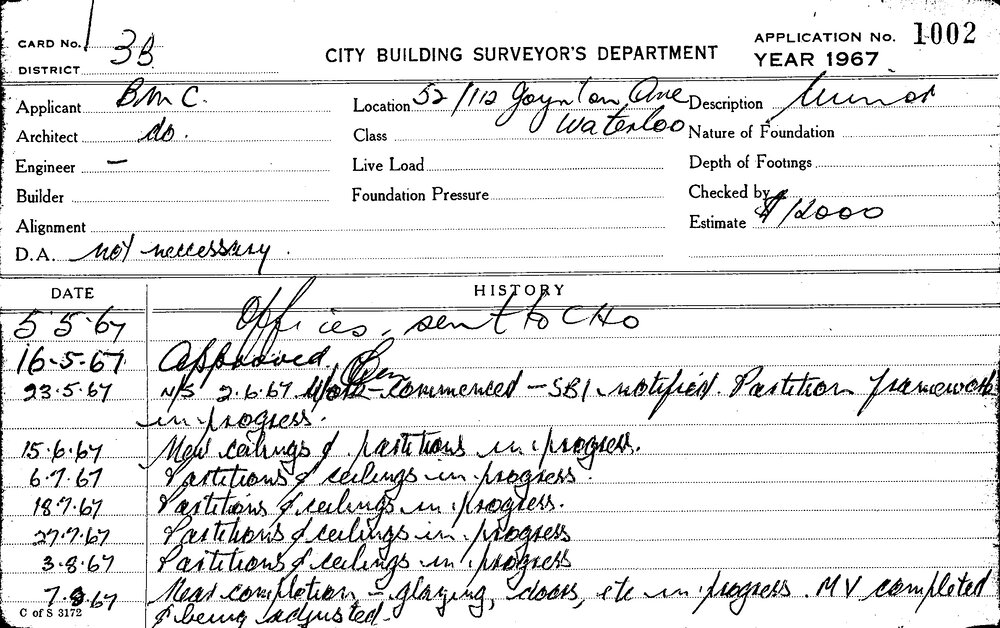 CARD No. 1
DISTRICT 3B
CITY BUILDING SURVEYOR'S DEPARTMENT
APPLICATION No. 1002
YEAR 1967
Applicant B.M.C.
Location 52/112 Joynton Ave Waterloo
Description Minor
Architect do.
Class
Nature of Foundation
Engineer –
Live Load
Depth of Footings
Builder
Foundation Pressure
Checked by
Alignment
Estimate $12000
D.A. not necessary.
DATE HISTORY
5.5.67 Offices, sent to CHO
16.5.67 Approved
23.5.67 N/S 2.6.67 Work commenced – SBI notified. Partition framework
in progress.
15.6.67 New ceilings & partitions in progress.
6.7.67 Partitions & ceilings in progress.
18.7.67 Partitions & ceilings in progress.
27.7.67 Partitions & ceilings in progress
3.8.67 Partitions & ceilings in progress
7.8.67 Near completion – glazing, doors, etc in progress. MV completed
& being adjusted.
C of S 3172